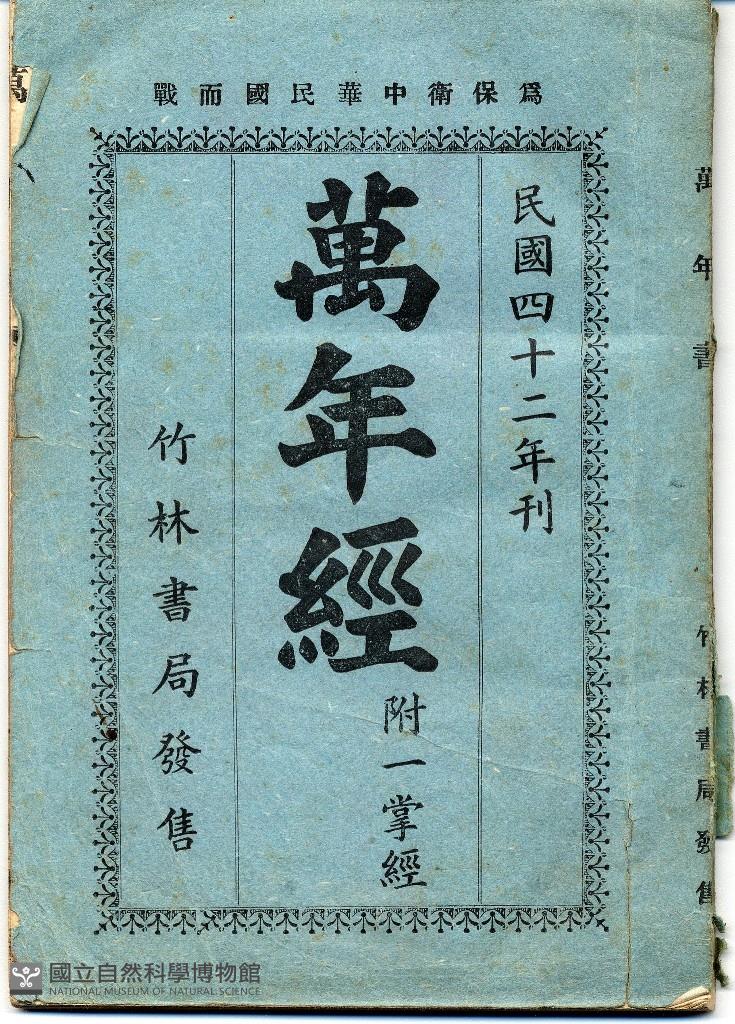 爲保衛中華民國而戰
民國四十二年刊
萬年經
附一掌經
竹林書局發售
萬年書
竹林書局發售
萬
國立自然科學博物館
NATIONAL MUSEUM OF NATURAL SCIENCE